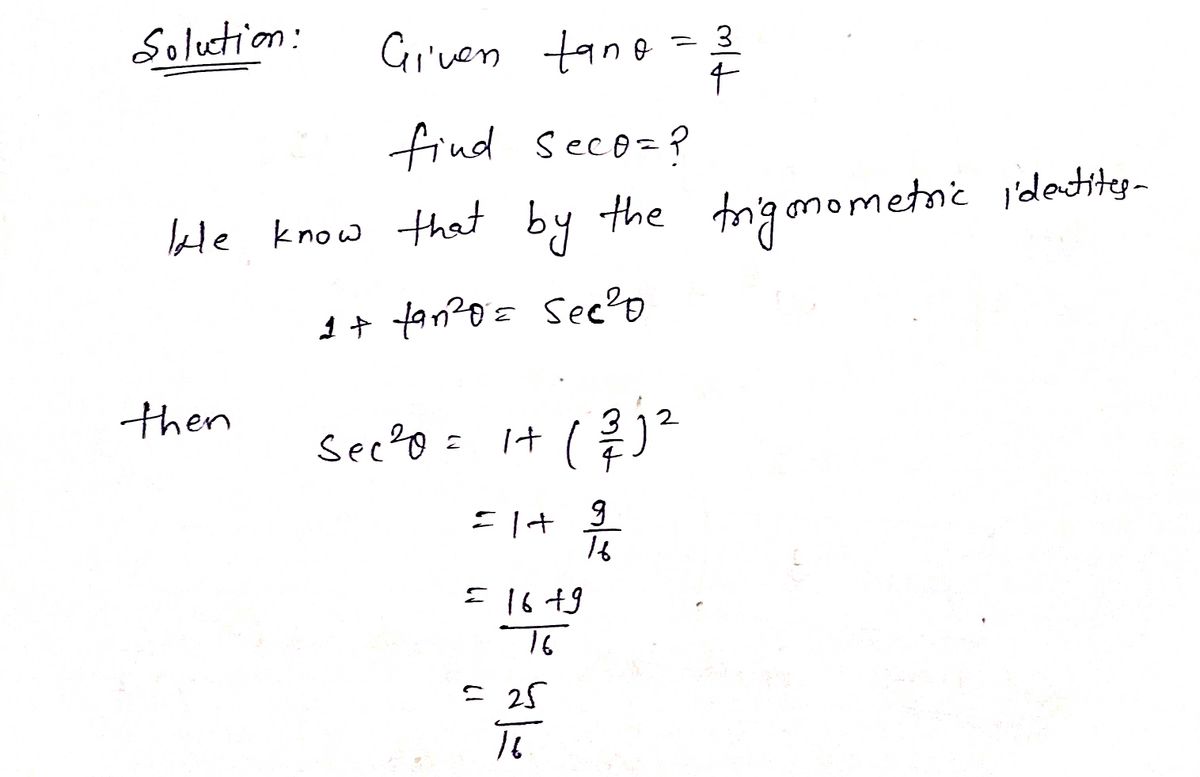 Solution: Given tanθ = 3/4
find secθ = ?
We know that by the trigonometric identites-
1 + tan²θ = Sec²θ
then Sec²θ = 1 + (3/4)²
= 1 + 9/16
= 16+9/16
= 25/16